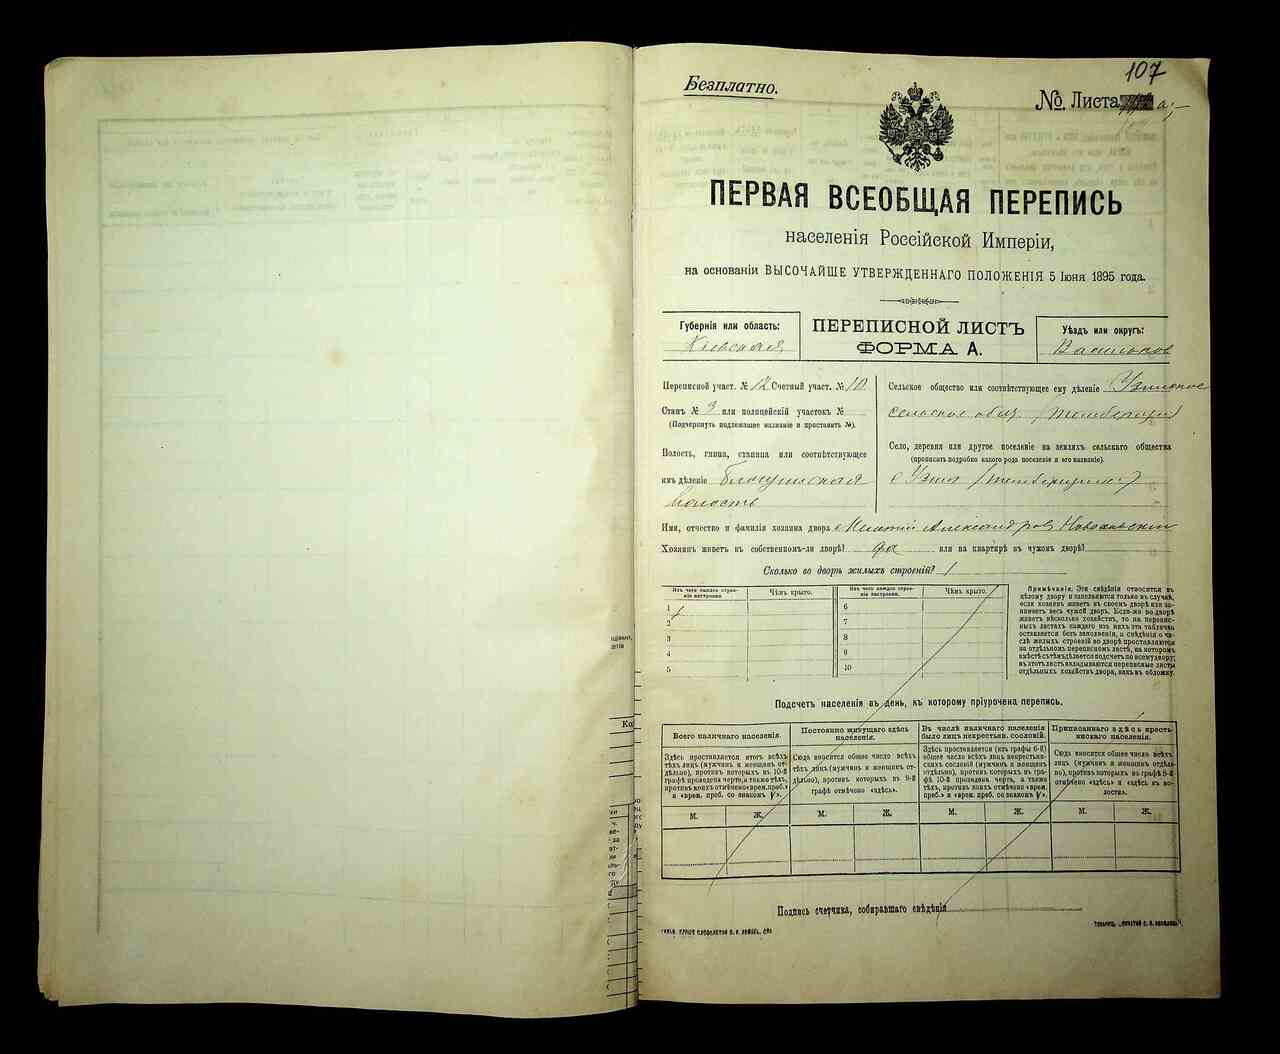 107
Безплатно.
№. Листа а;
ПЕРВАЯ ВСЕОБЩАЯ ПЕРЕПИСЬ
населенія Россійской Имперіи,
на основаніи ВЫСОЧАЙШЕ УТВЕРЖДЕННАГО ПОЛОЖЕНІЯ 5 Іюня 1895 года.
Губернія или область:
Кіевская
ПЕРЕПИСНОЙ ЛИСТЪ
ФОРМА А.
Уѣздъ или округъ:
Васильков
Переписной участ. № 12 Счетный участ. № 10
Станъ № 3 или полицейскій участокъ №
(Подчеркнуть подлежащее названіе и проставить №).
Волость, гмина, станица или соотвѣтствующее
имъ дѣленіе
волость
Сельское общество или соотвѣтствующее ему дѣленіе Узинское
сельское общ
Село, деревня или другое поселеніе на земляхъ сельскаго общества
(прописать подробно какого рода поселеніе и его названіе).
с Узин
Имя, отчество и фамилія хозяина двора Александров
Хозяинъ живетъ въ собственномъ-ли дворѣ? да или на квартирѣ въ чужомъ дворѣ?
Сколько во дворѣ жилыхъ строеній? 1
Изъ чего каждое строеніе построено.
Чѣмъ крыто.
Изъ чего каждое строеніе построено.
Чѣмъ крыто.
1
2
3
4
5
6
7
8
9
10
Примѣчаніе. Эти свѣдѣнія относятся къ
цѣлому двору и заполняются только въ случаѣ,
если хозяинъ живетъ въ своемъ дворѣ или занимаетъ
весь чужой дворъ. Если-же во дворѣ
живетъ нѣсколько хозяйствъ, то на переписныхъ
листахъ каждаго изъ нихъ эта табличка
оставляется безъ заполненія, а свѣдѣнія о числѣ
жилыхъ строеній во дворѣ проставляются
на отдѣльномъ переписномъ листѣ, на которомъ
вмѣстѣ съ тѣмъ дѣлается подсчетъ по всему двору;
въ этотъ листъ вкладываются переписные листы
отдѣльныхъ хозяйствъ двора, какъ въ обложку.
Подсчетъ населенія въ день, къ которому пріурочена перепись.
Всего наличнаго населенія.
Постоянно живущаго здѣсь населенія.
Въ числѣ наличнаго населенія было лицъ некрестьян. сословій.
Приписаннаго здѣсь крестьянскаго населенія.
Здѣсь проставляется итогъ всѣхъ
тѣхъ лицъ (мужчинъ и женщинъ отдѣльно),
противъ которыхъ въ 10-й
графѣ проведена черта, а также тѣхъ,
противъ коихъ отмѣчено «врем. преб.»
и «врем. преб. со знакомъ V».
Сюда вносится общее число всѣхъ
тѣхъ лицъ (мужчинъ и женщинъ отдѣльно),
противъ которыхъ въ 9-й
графѣ отмѣчено «здѣсь».
Здѣсь проставляется (къ графы 6-й)
общее число всѣхъ лицъ некрестьянскихъ
сословій (мужчинъ и женщинъ
отдѣльно), противъ которыхъ въ графѣ
10-й проведена черта, а также
тѣхъ, противъ коихъ отмѣчено «врем.
преб.» и «врем. преб. со знакомъ V».
Сюда вносится общее число всѣхъ
лицъ (мужчинъ и женщинъ отдѣльно),
противъ которыхъ въ графѣ 8-й
отмѣчено «здѣсь» и «здѣсь въ волости».
М. Ж. М. Ж. М. Ж. М. Ж.
Подпись счетчика, собиравшаго свѣдѣнія